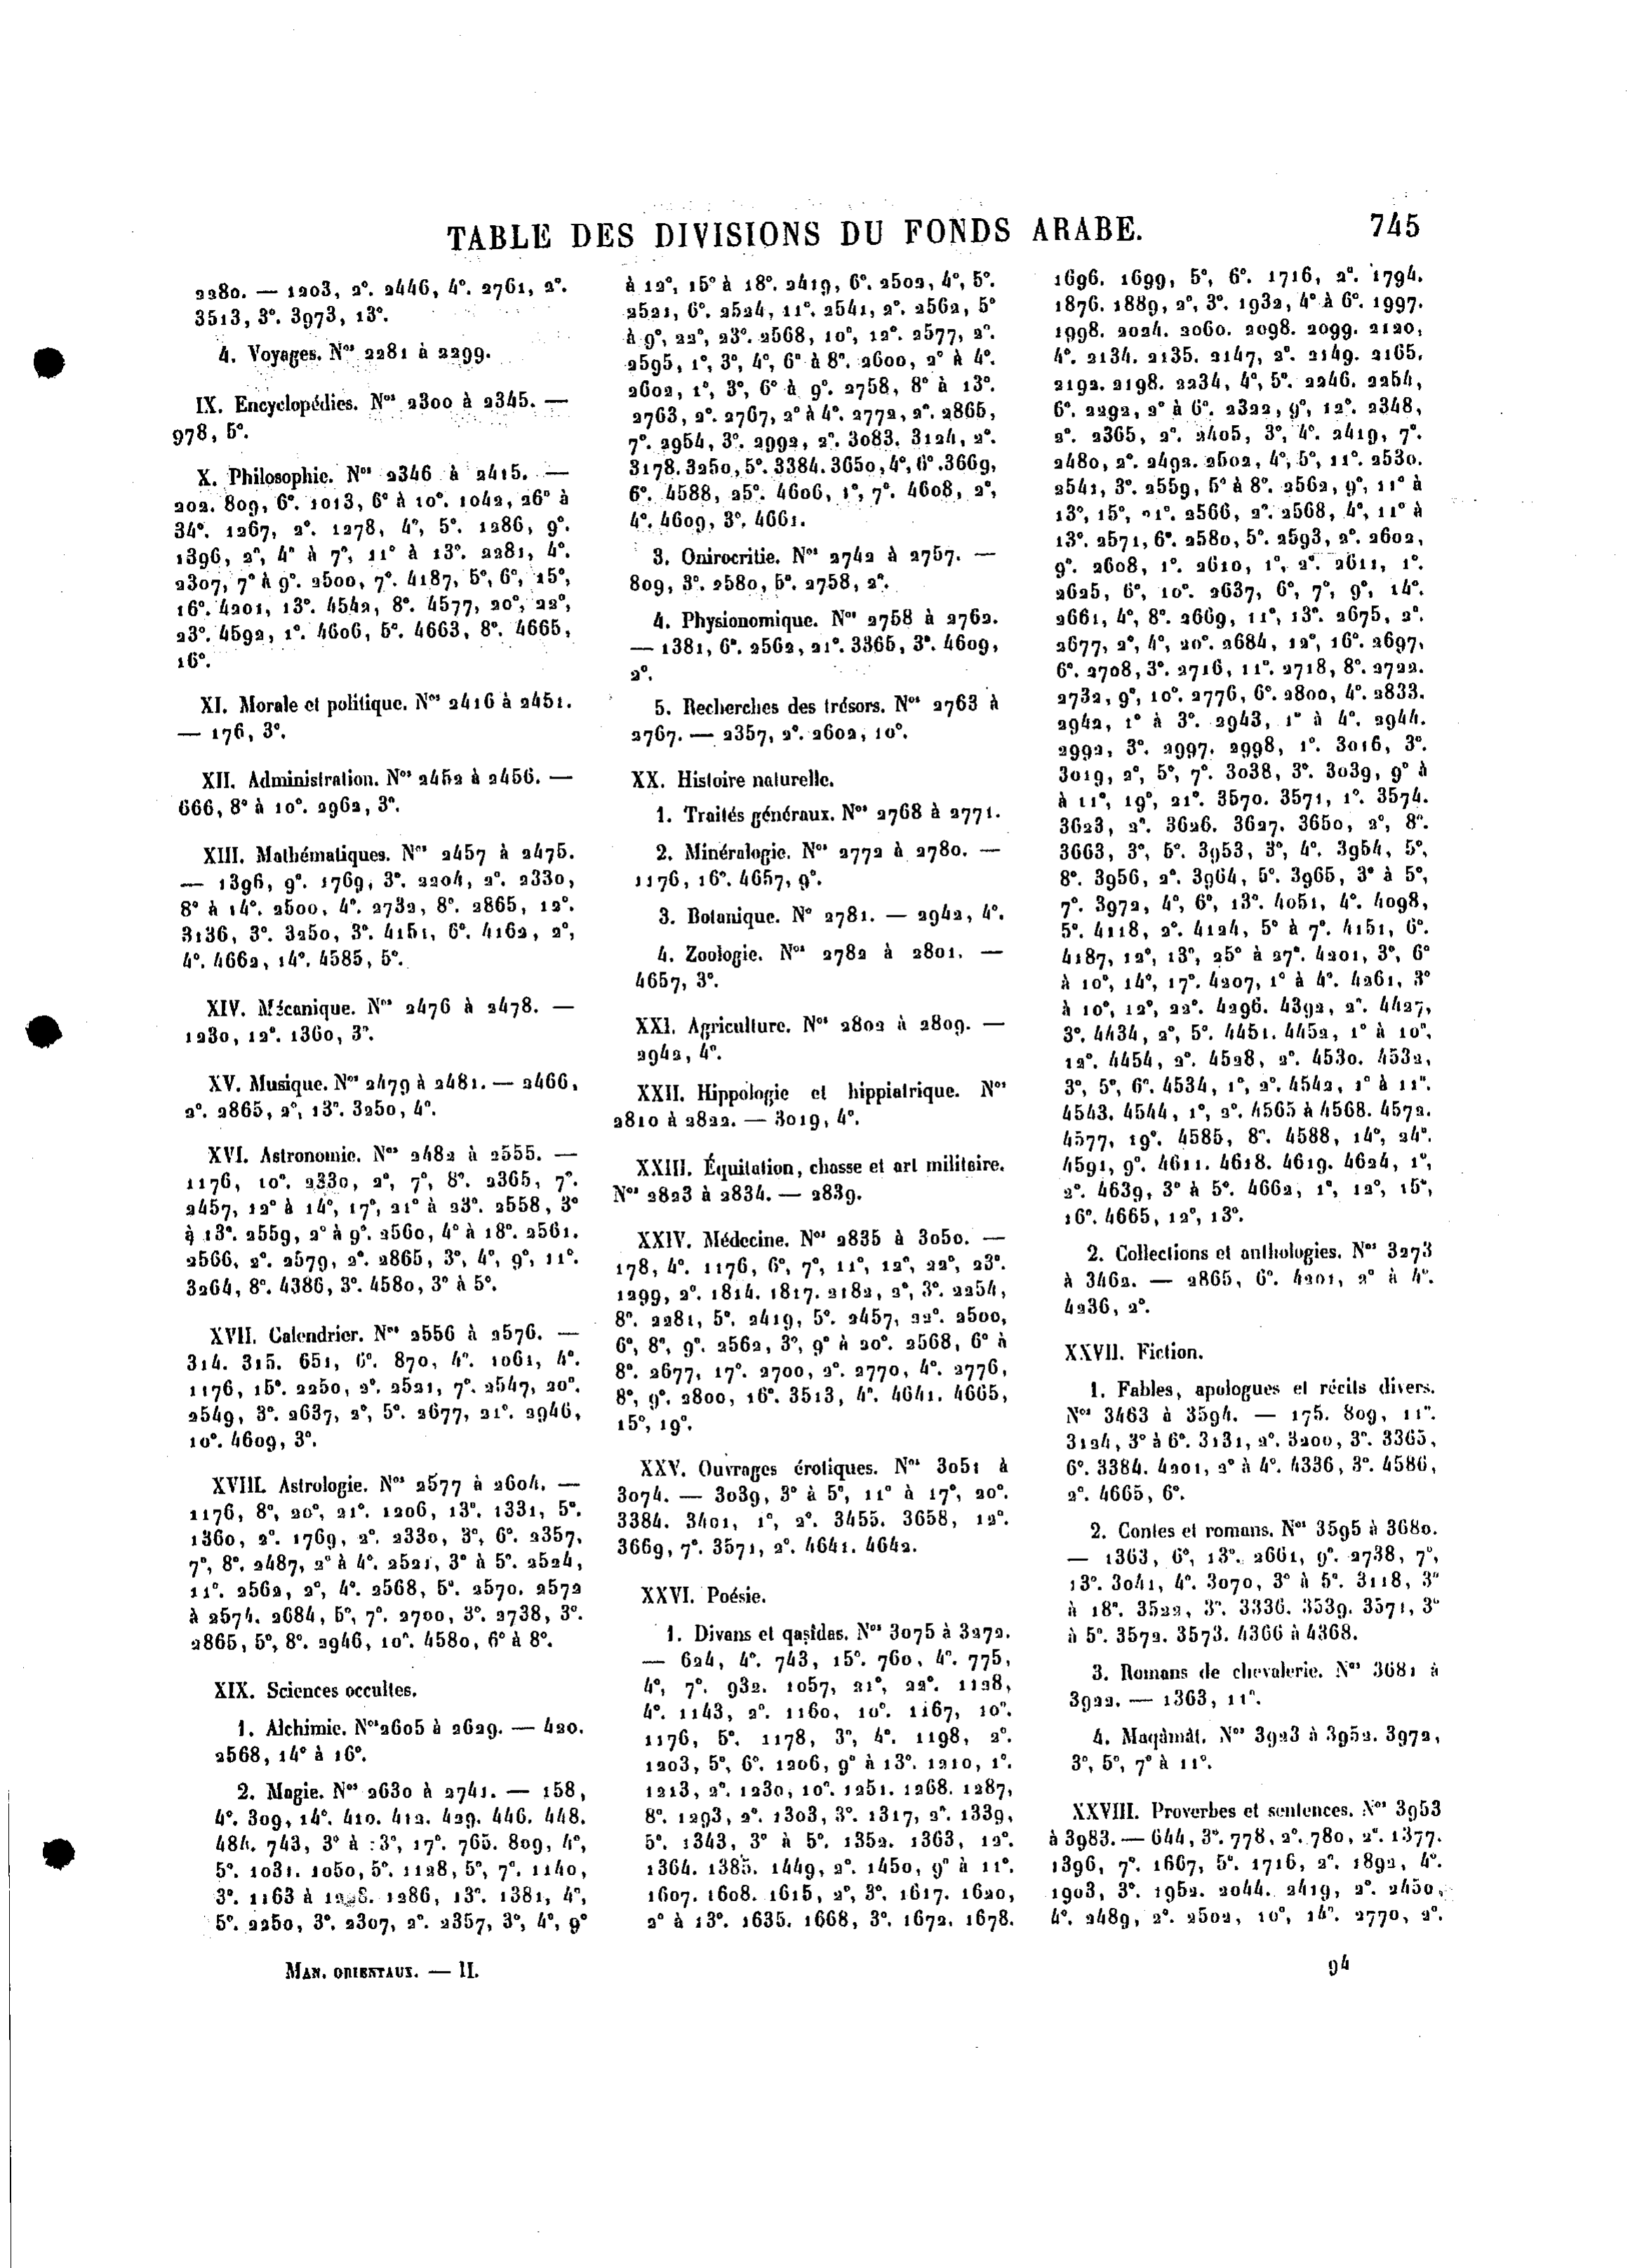 TABLE DES DIVISIONS DU FONDS ARABE. 745
2280. — 1203, 2°. 2446, 4°. 2761, 2°.
3513, 3°. 3973, 13°.
4. Voyages. Nos 2281 à 2299.
IX. Encyclopédies. Nos 2300 à 2345. —
978, 5°.
X. Philosophie. Nos 2346 à 2415. —
202. 809, 6°. 1013, 6° à 10°. 1042, 26° à
34°. 1267, 2°. 1278, 4°, 5°. 1286, 9°.
1396, 2°, 4° à 7°, 11° à 13°. 2281, 4°.
2307, 7° à 9°. 2500, 7°. 4187, 5°, 6°, 15°,
16°. 4201, 13°. 4542, 8°. 4577, 20°, 22°,
23°. 4592, 1°. 4606, 5°. 4663, 8°. 4665,
16°.
XI. Morale et politique. Nos 2416 à 2451.
— 176, 3°.
XII. Administration. Nos 2452 à 2456. —
666, 8° à 10°. 2962, 3°.
XIII. Mathématiques. Nos 2457 à 2475.
— 1396, 9°. 1769, 3°. 2204, 2°. 2330,
8° à 14°. 2500, 4°. 2732, 8°. 2865, 12°.
3136, 3°. 3250, 3°. 4151, 6°. 4162, 2°,
4°. 4662, 14°. 4585, 5°.
XIV. Mécanique. Nos 2476 à 2478. —
1230, 12°. 1360, 3°.
XV. Musique. Nos 2479 à 2481. — 2466,
2°. 2865, 2°, 13°. 3250, 4°.
XVI. Astronomie. Nos 2482 à 2555. —
1176, 10°. 2330, 2°, 7°, 8°. 2365, 7°.
2457, 12° à 14°, 17°, 21° à 23°. 2558, 3°
à 13°. 2559, 2° à 9°. 2560, 4° à 18°. 2561.
2566, 2°. 2579, 2°. 2865, 3°, 4°, 9°, 11°.
3264, 8°. 4386, 3°. 4580, 3° à 5°.
XVII. Calendrier. Nos 2556 à 2576. —
314. 315. 651, 6°. 870, 4°. 1061, 4°.
1176, 15°. 2250, 2°. 2521, 7°. 2547, 20°.
2549, 3°. 2637, 2°, 5°. 2677, 21°. 2946,
10°. 4609, 3°.
XVIII. Astrologie. Nos 2577 à 2604. —
1176, 8°, 20°, 21°. 1206, 13°. 1331, 5°.
1360, 2°. 1769, 2°. 2330, 3°, 6°. 2357,
7°, 8°. 2487, 2° à 4°. 2521, 3° à 5°. 2524,
11°. 2562, 2°, 4°. 2568, 5°. 2570. 2572
à 2574. 2684, 5°, 7°. 2700, 3°. 2738, 3°.
2865, 5°, 8°. 2946, 10°. 4580, 6° à 8°.
XIX. Sciences occultes.
1. Alchimie. Nos 2605 à 2629. — 420.
2568, 14° à 16°.
2. Magie. Nos 2630 à 2741. — 158,
4°. 309, 14°. 410. 412. 429. 446. 448.
484. 743, 3° à :3°, 17°. 765. 809, 4°,
5°. 1031. 1050, 5°. 1128, 5°, 7°. 1140,
3°. 1163 à 1286, 13°. 1381, 4°,
5°. 2250, 3°. 2307, 2°. 2357, 3°, 4°, 9°
à 12°, 15° à 18°. 2419, 6°. 2502, 4°, 5°.
2521, 6°. 2524, 11°. 2541, 2°. 2562, 5°
à 9°, 22°, 23°. 2568, 10°, 12°. 2577, 2°.
2595, 1°, 3°, 4°, 6° à 8°. 2600, 2° à 4°.
2602, 1°, 3°, 6° à 9°. 2758, 8° à 13°.
2763, 2°. 2767, 2° à 4°. 2772, 2°. 2865,
7°. 2954, 3°. 2992, 2°. 3083. 3124, 2°.
3178. 3250, 5°. 3384. 3650, 4°, 6°. 3669,
6°. 4588, 25°. 4606, 1°, 7°. 4608, 2°,
4°. 4609, 3°. 4661.
3. Onirocritie. Nos 2742 à 2757. —
809, 3°. 2580, 5°. 2758, 2°.
4. Physionomique. Nos 2758 à 2762.
— 1381, 6°. 2562, 21°. 3365, 3°. 4609,
2°.
5. Recherches des trésors. Nos 2763 à
2767. — 2357, 2°. 2602, 10°.
XX. Histoire naturelle.
1. Traités généraux. Nos 2768 à 2771.
2. Minéralogie. Nos 2772 à 2780. —
1176, 16°. 4657, 9°.
3. Botanique. N° 2781. — 2942, 4°.
4. Zoologie. Nos 2782 à 2801. —
4657, 3°.
XXI. Agriculture. Nos 2802 à 2809. —
2942, 4°.
XXII. Hippologie et hippiatrique. Nos
2810 à 2822. — 3019, 4°.
XXIII. Équitation, chasse et art militaire.
Nos 2823 à 2834. — 2839.
XXIV. Médecine. Nos 2835 à 3050. —
178, 4°. 1176, 6°, 7°, 11°, 12°, 22°, 23°.
1299, 2°. 1814. 1817. 2182, 2°, 3°. 2254,
8°. 2281, 5°. 2419, 5°. 2457, 22°. 2500,
6°, 8°, 9°. 2562, 3°, 9° à 20°. 2568, 6° à
8°. 2677, 17°. 2700, 2°. 2770, 4°. 2776,
8°, 9°. 2800, 16°. 3513, 4°. 4641. 4665,
15°, 19°.
XXV. Ouvrages érotiques. Nos 3051 à
3074. — 3039, 3° à 5°, 11° à 17°, 20°.
3384. 3401, 1°, 2°. 3455. 3658, 12°.
3669, 7°. 3571, 2°. 4641. 4642.
XXVI. Poésie.
1. Divans et qaṣîdas. Nos 3075 à 3272.
— 624, 4°. 743, 15°. 760, 4°. 775,
4°, 7°. 932. 1057, 21°, 22°. 1128,
4°. 1143, 2°. 1160, 10°. 1167, 10°.
1176, 5°. 1178, 3°, 4°. 1198, 2°.
1203, 5°, 6°. 1206, 9° à 13°. 1210, 1°.
1213, 2°. 1230, 10°. 1251. 1268. 1287,
8°. 1293, 2°. 1303, 3°. 1317, 2°. 1339,
5°. 1343, 3° à 5°. 1352. 1363, 12°.
1364. 1385. 1449, 2°. 1450, 9° à 11°.
1607. 1608. 1615, 2°, 3°. 1617. 1620,
2° à 13°. 1635. 1668, 3°. 1672. 1678.
1696. 1699, 5°, 6°. 1716, 2°. 1794.
1876. 1889, 2°, 3°. 1932, 4° à 6°. 1997.
1998. 2024. 2060. 2098. 2099. 2120,
4°. 2134. 2135. 2147, 2°. 2149. 2165.
2192. 2198. 2234, 4°, 5°. 2246. 2254,
6°. 2292, 2° à 6°. 2322, 9°, 12°. 2348,
2°. 2365, 2°. 2405, 3°, 4°. 2419, 7°.
2480, 2°. 2492. 2502, 4°, 5°, 11°. 2530.
2541, 3°. 2559, 5° à 8°. 2562, 9°, 11° à
13°, 15°, 21°. 2566, 2°. 2568, 4°, 11° à
13°. 2571, 6°. 2580, 5°. 2593, 2°. 2602,
9°. 2608, 1°. 2610, 1°, 2°. 2611, 1°.
2625, 6°, 10°. 2637, 6°, 7°, 9°, 14°.
2661, 4°, 8°. 2669, 11°, 13°. 2675, 2°.
2677, 2°, 4°, 20°. 2684, 12°, 16°. 2697,
6°. 2708, 3°. 2716, 11°. 2718, 8°. 2722.
2732, 9°, 10°. 2776, 6°. 2800, 4°. 2833.
2942, 1° à 3°. 2943, 1° à 4°. 2944.
2992, 3°. 2997. 2998, 1°. 3016, 3°.
3019, 2°, 5°, 7°. 3038, 3°. 3039, 9° à
à 11°, 19°, 21°. 3570. 3571, 1°. 3574.
3623, 2°. 3626. 3627. 3650, 2°, 8°.
3663, 3°, 5°. 3953, 3°, 4°. 3954, 5°,
8°. 3956, 2°. 3964, 5°. 3965, 3° à 5°,
7°. 3972, 4°, 6°, 13°. 4051, 4°. 4098,
5°. 4118, 2°. 4124, 5° à 7°. 4151, 6°.
4187, 12°, 13°, 25° à 27°. 4201, 3°, 6°
à 10°, 14°, 17°. 4207, 1° à 4°. 4261, 3°
à 10°, 12°, 22°. 4296. 4392, 2°. 4427,
3°. 4434, 2°, 5°. 4451. 4452, 1° à 10°,
12°. 4454, 2°. 4528, 2°. 4530. 4532,
3°, 5°, 6°. 4534, 1°, 2°. 4542, 1° à 11°.
4543. 4544, 1°, 2°. 4565 à 4568. 4572.
4577, 19°. 4585, 8°. 4588, 14°, 24°.
4591, 9°. 4611. 4618. 4619. 4624, 1°,
2°. 4639, 3° à 5°. 4662, 1°, 12°, 15°,
16°. 4665, 12°, 13°.
2. Collections et anthologies. Nos 3273
à 3462. — 2865, 6°. 4201, 2° à 4°.
4236, 2°.
XXVII. Fiction.
1. Fables, apologues et récits divers.
Nos 3463 à 3594. — 175. 809, 11°.
3124, 3° à 6°. 3131, 2°. 3200, 3°. 3365,
6°. 3384. 4201, 2° à 4°. 4336, 3°. 4586,
2°. 4665, 6°.
2. Contes et romans. Nos 3595 à 3680.
— 1363, 6°, 13°. 2661, 9°. 2738, 7°,
13°. 3041, 4°. 3070, 3° à 5°. 3118, 3°
à 18°. 3522, 3°. 3336. 3539. 3571, 3°
à 5°. 3572. 3573. 4366 à 4368.
3. Romans de chevalerie. Nos 3681 à
3922. — 1363, 11°.
4. Maqâmât. Nos 3923 à 3952. 3972,
3°, 5°, 7° à 11°.
XXVIII. Proverbes et sentences. Nos 3953
à 3983. — 644, 3°. 778, 2°. 780, 2°. 1377.
1396, 7°. 1667, 5°. 1716, 2°. 1892, 4°.
1903, 3°. 1952. 2044. 2419, 2°. 2450,
4°. 2489, 2°. 2502, 10°, 14°. 2770, 2°.
MAN. ORIENTAUX. — II. 94